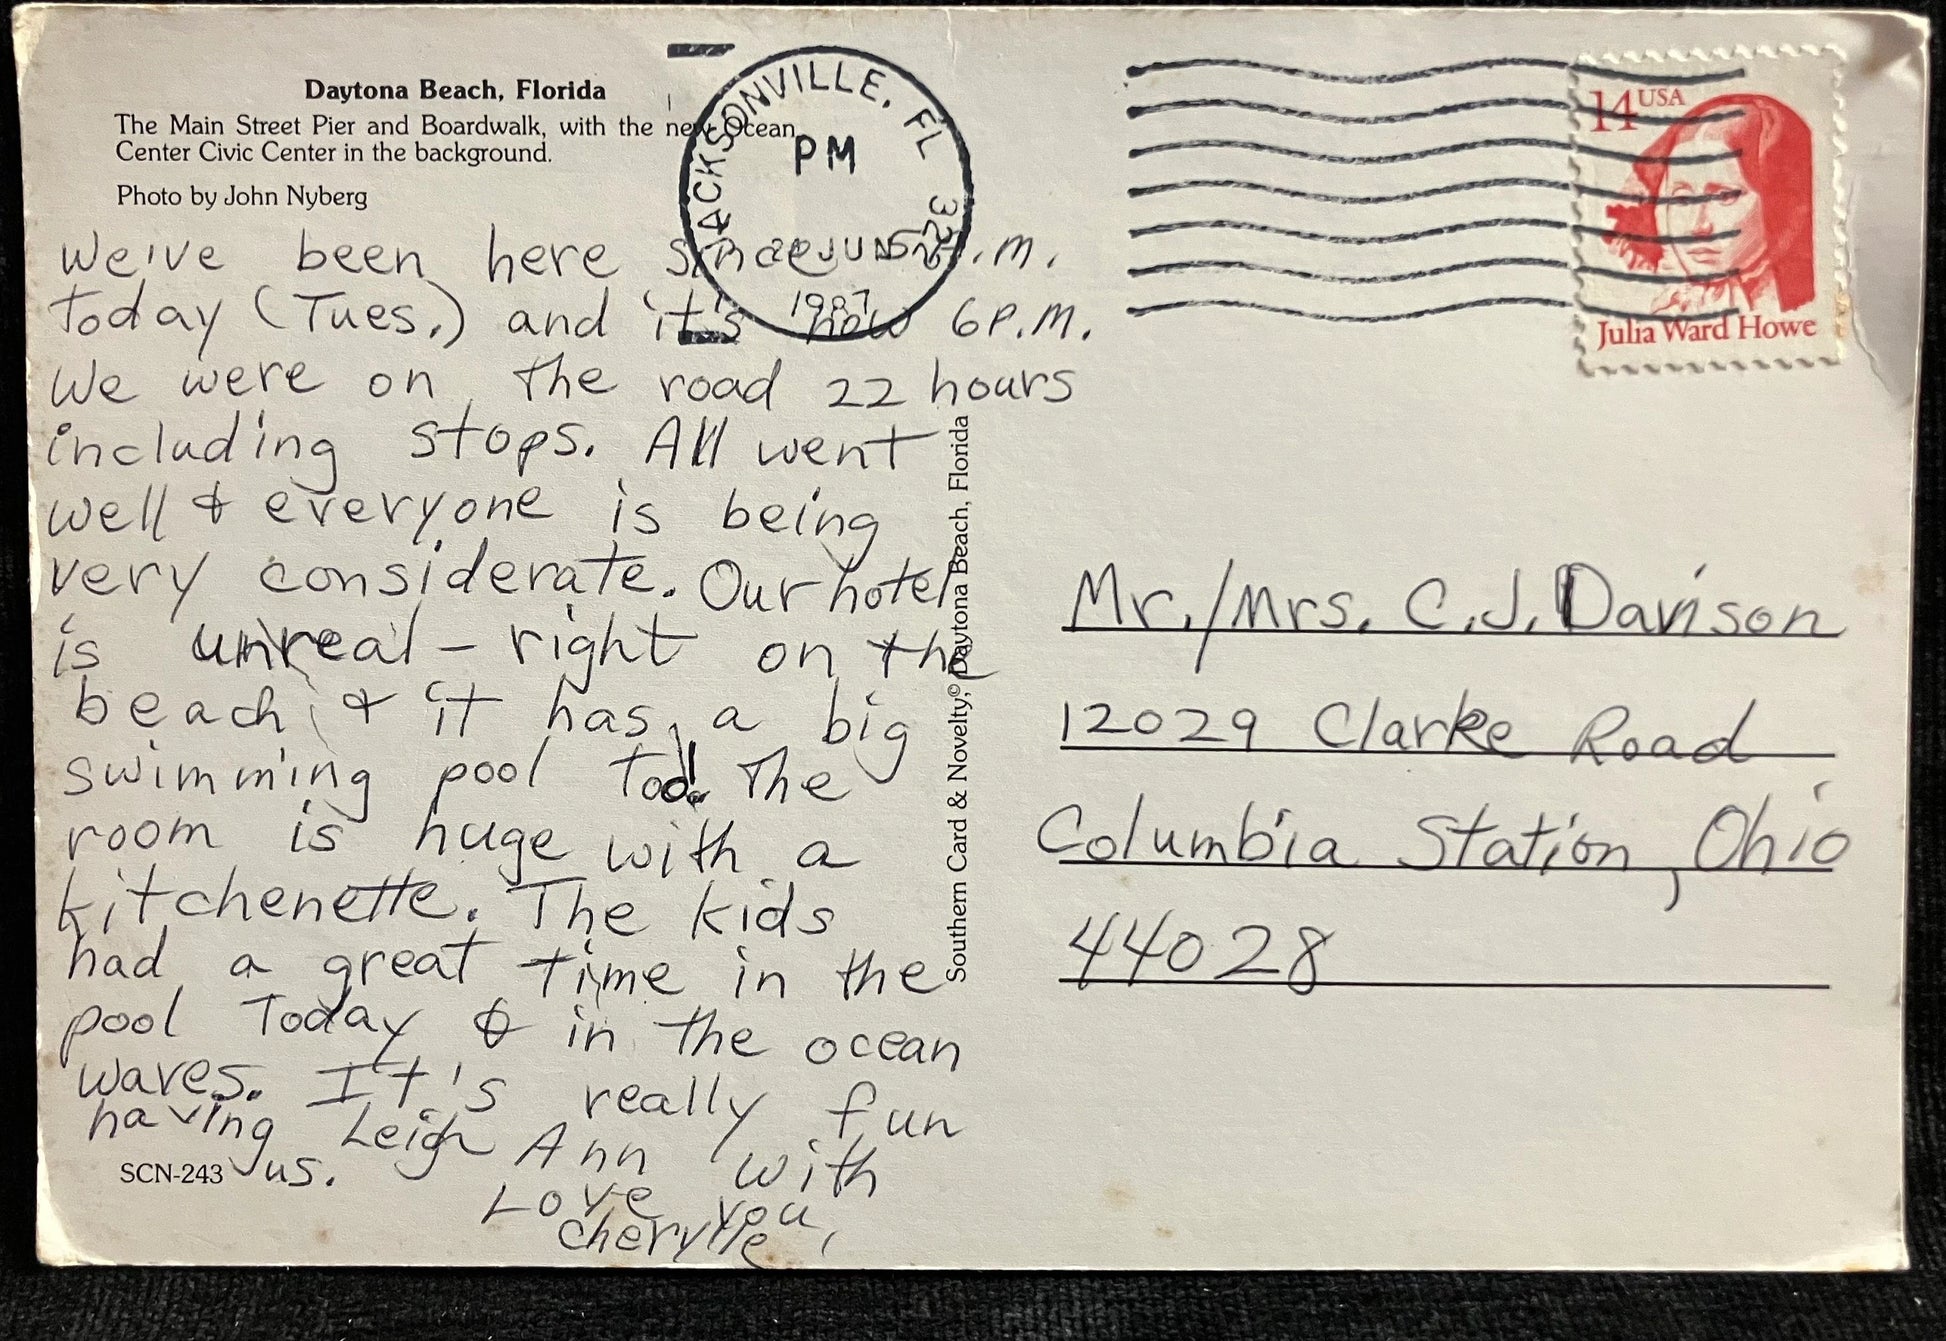 Daytona Beach, Florida
The Main Street Pier and Boardwalk, with the new Ocean
Center Civic Center in the background.
Photo by John Nyberg
We've been here since 5 A.m.
today (Tues.) and it's now 6 P.M.
We were on the road 22 hours
including stops. All went
well & everyone is being
very considerate. Our hotel
is unreal - right on the
beach & it has a big
swimming pool too! The
room is huge with a
kitchenette. The kids
had a great time in the
pool Today & in the ocean
waves. It's really fun
having Leigh Ann with
us.
Love you,
Cherylle
SCN-243
Southern Card & Novelty, © Daytona Beach, Florida
JACKSONVILLE, FL
PM
JUN
1987
14 USA
Julia Ward Howe
Mr./Mrs. C.J. Davison
12029 Clarke Road
Columbia Station, Ohio
44028